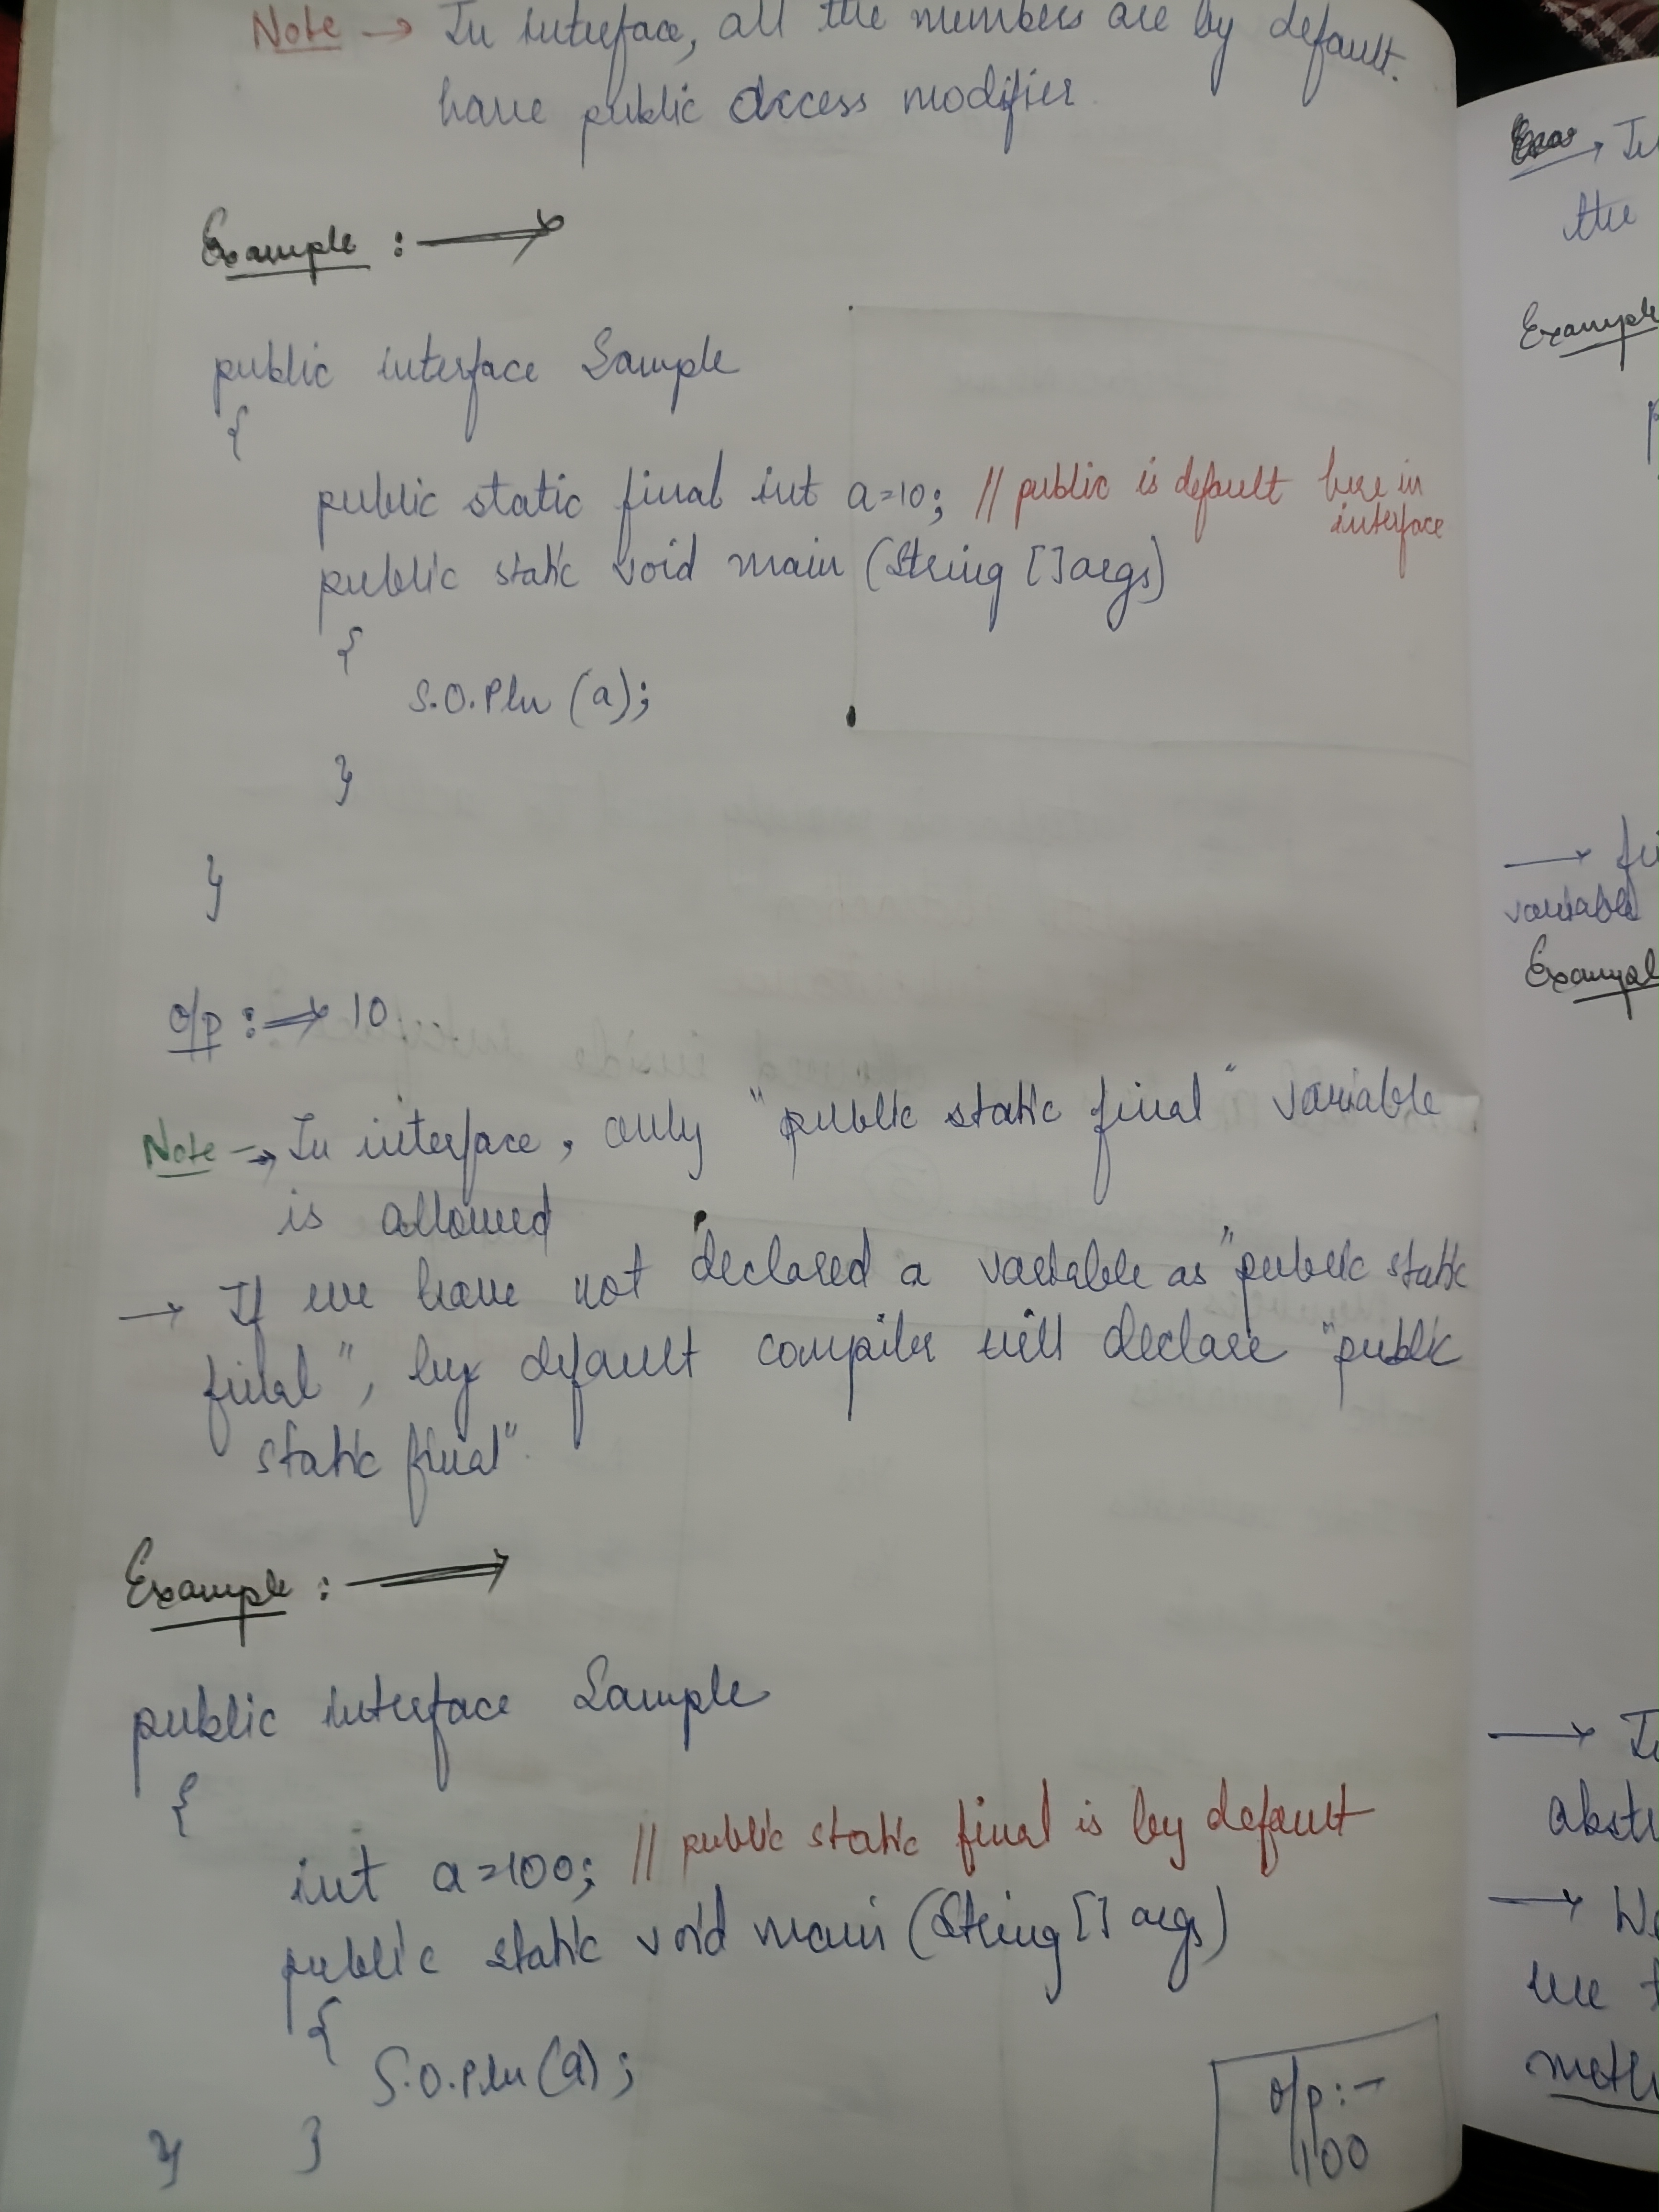 Note → In interface, all the members are by default.
have public access modifier
Example : →
public interface Sample
{
public static final int a=10; // public is default here in
interface
public static void main (String [] args)
{
S.O.Pln (a);
}
}
o/p : → 10
Note → In interface, only "public static final" variable
is allowed
→ If we have not declared a variable as "public static
final", by default compiler will declare "public
static final".
Example : →
public interface Sample
{
int a=100; // public static final is by default
public static void main (String [] args)
{
S.O.Pln (a);
} }
o/p :-
100
the
Example
variable
Example